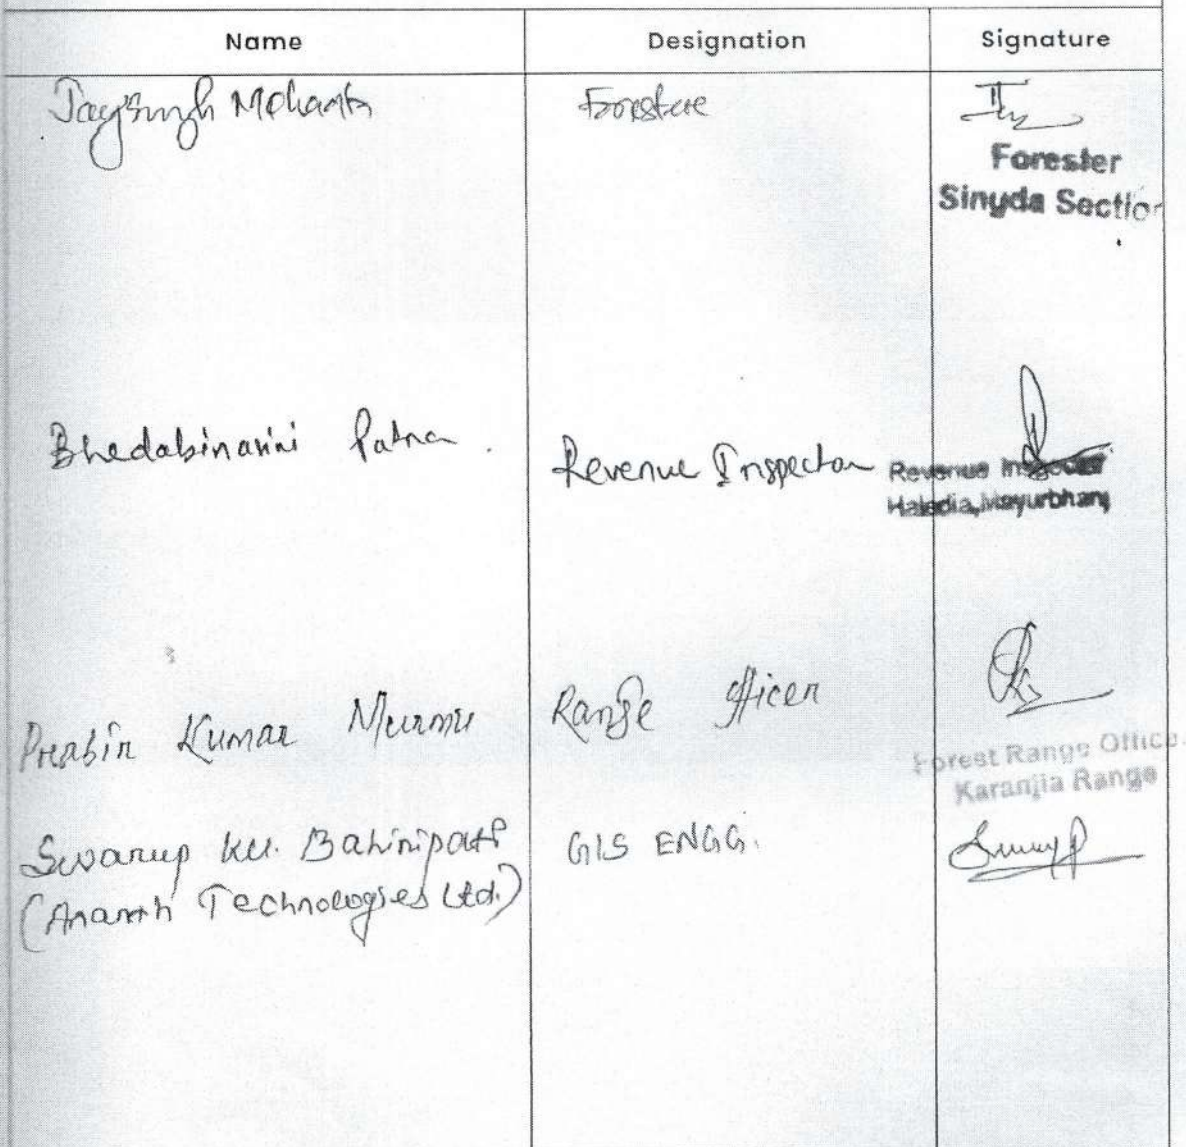 Name Designation Signature
Jaysingh Mohanta Forester
Forester
Sinyda Section
Bhedabinasini Patra. Revenue Inspector
Revenue Inspector
Haladia, Mayurbhanj
Prabir Kumar Murmu Range Officer
Forest Range Office
Karanjia Range
Swarup Ku. Bahinipati GIS ENGG.
(Ananth Technologies Ltd.)